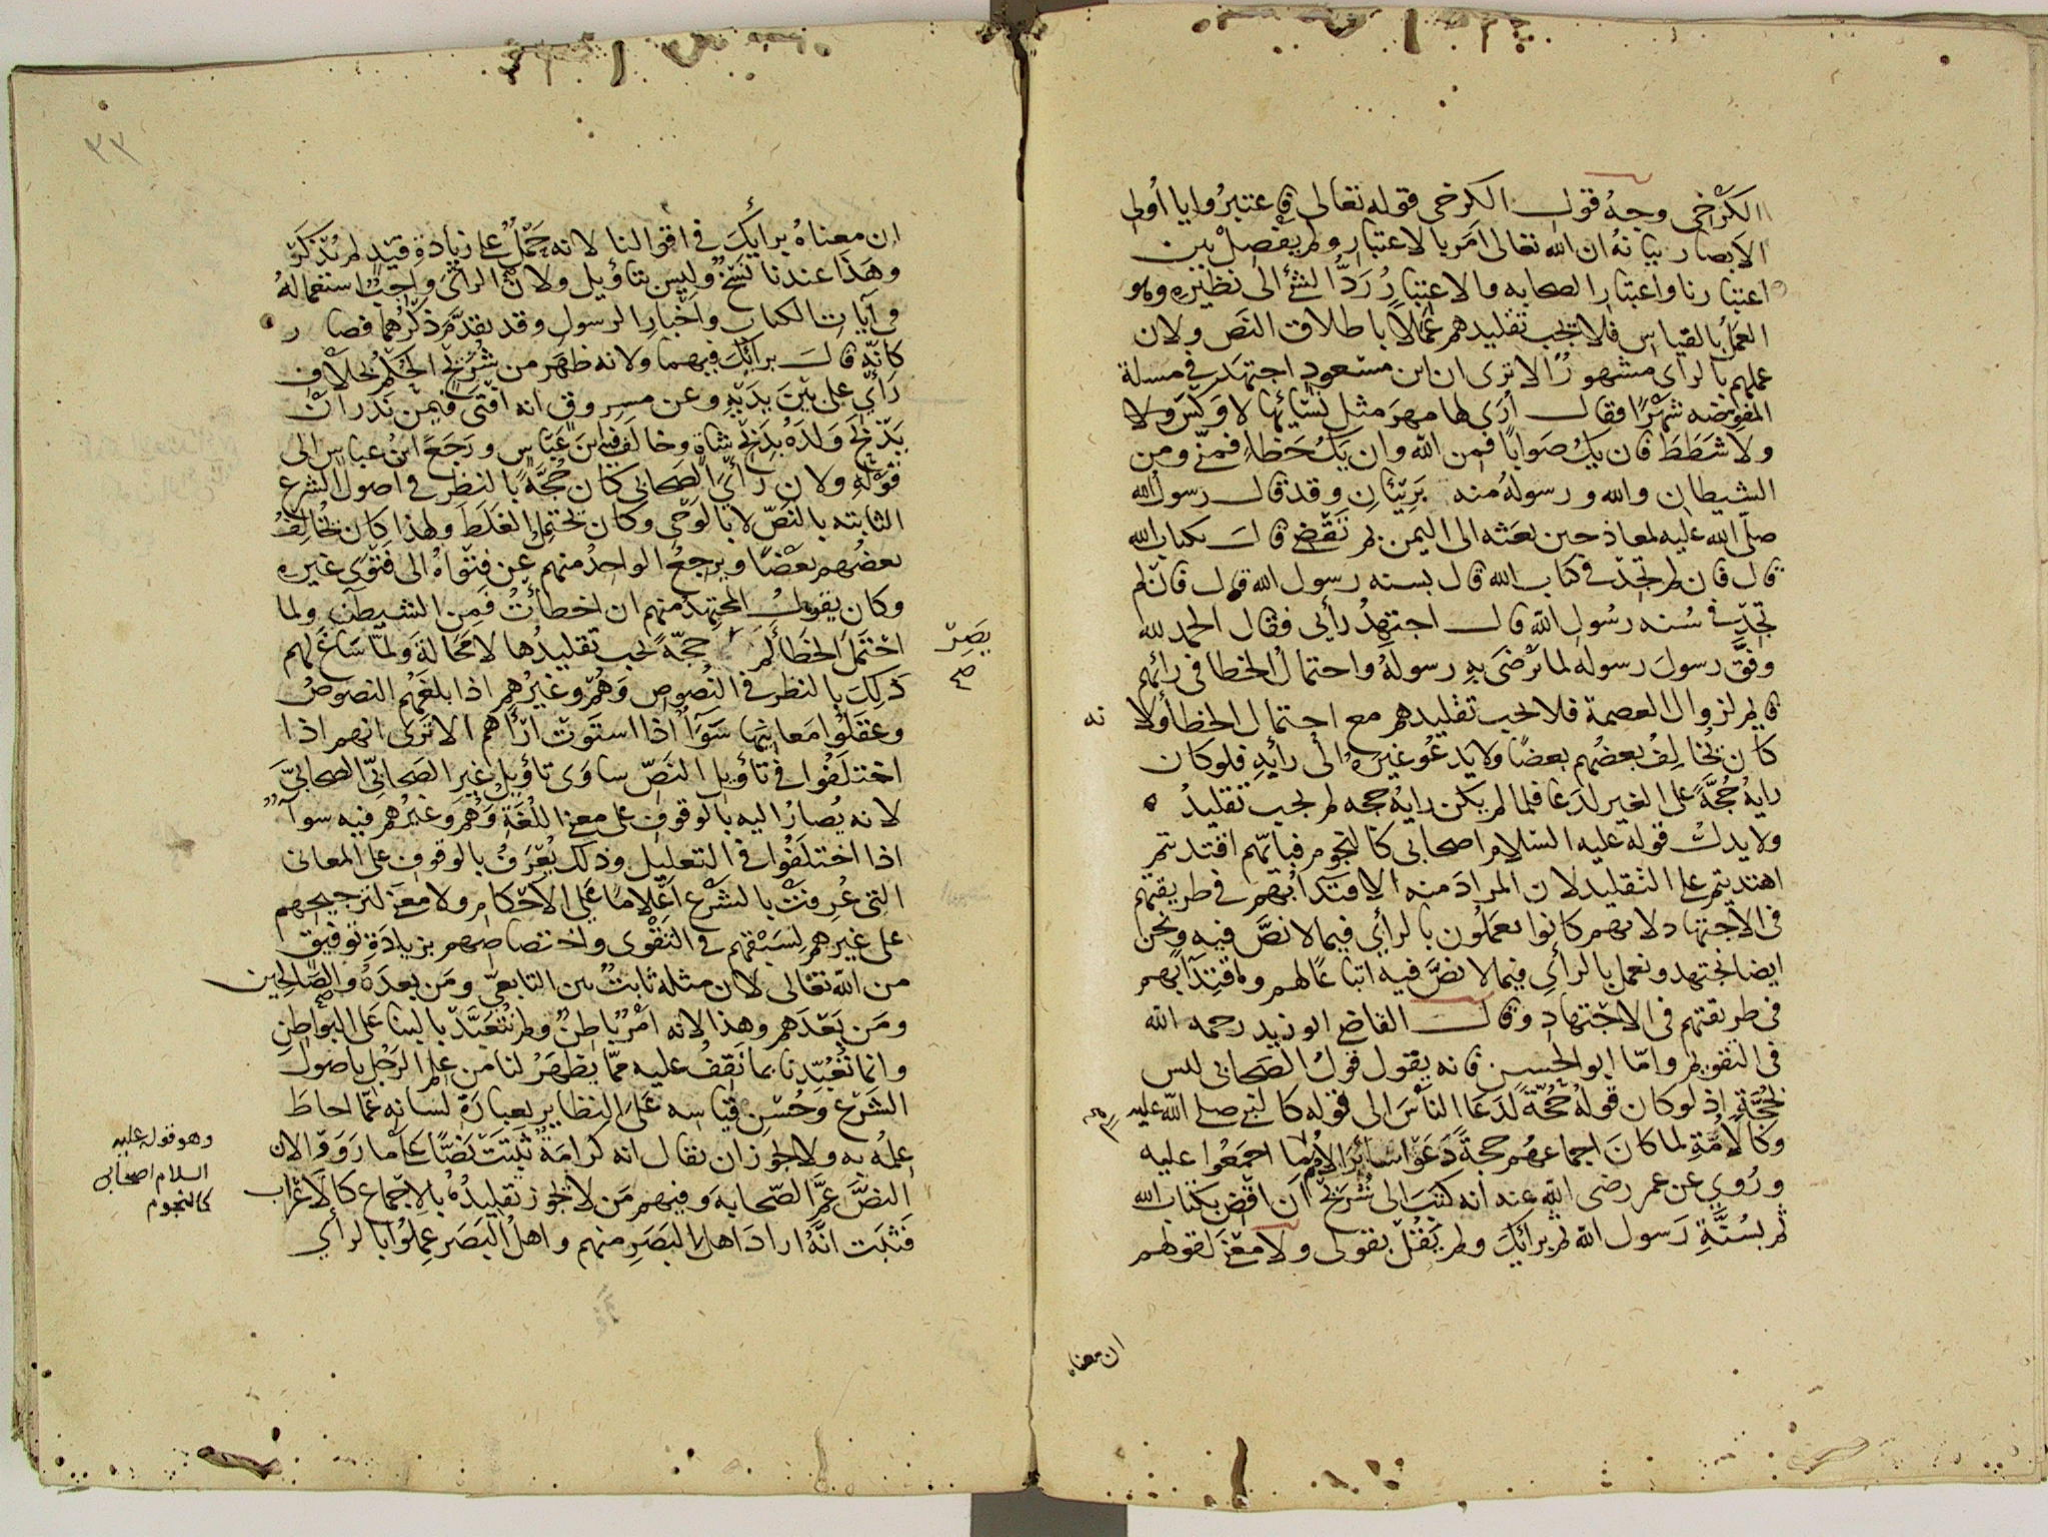 الكرخي وجه قول الكرخي قوله تعالى فاعتبروا يا أولى
الابصار بيانه ان الله تعالى امر بالاعتبار ولم يفصل بين
اعتبارنا واعتبار الصحابه والاعتبار رد الشئ الى نظيره وهو
العمل بالقياس فلا يجب تقليدهم عملا باطلاق النص ولان
عملهم بالراى مشهور الا ترى ان ابن مسعود اجتهد في مسلة
المفوضه شهرا فقال أرى لها مهر مثل نسائها لا وكس ولا
ولا شطط فان يك صوابا فمن الله وان يك خطاء فمنى ومن
الشيطان والله ورسوله منه بريئان وقد قال رسول الله
صلى الله عليه لمعاذ حين بعثه الى اليمن بم تقضى قال بكتاب الله
قال فان لم تجد في كتاب الله قال بسنه رسول الله قال فان لم
تجد في سنه رسول الله قال اجتهد رأيى فقال الحمد لله
وفق رسول رسوله لما ترضى به رسوله واحتمال الخطا فى رائهم
قايم لزوال العصمة فلا يجب تقليدهم مع احتمال الخطأ ولانه
كان يخالف بعضهم بعضا ولا يدعو غيره الى رايه فلو كان
رايه حجة على الغير لدعا فلما لم يكن رايه حجه لم يجب تقليده
ولا يدل قوله عليه السلام اصحابى كالنجوم فبايهم اقتديتم
اهتديتم على التقليد لان المراد منه الاقتدا بهم في طريقتهم
فى الاجتهاد لانهم كانوا يعملون بالرأي فيما لا نص فيه ونحن
ايضا نجتهد ونعمل بالراي فيما لا نص فيه اتباعا لهم واقتدا بهم
فى طريقتهم فى الاجتهاد وقال القاضى ابو زيد رحمه الله
فى التقويم واما ابو الحسن فانه يقول قول الصحابى ليس
بحجة اذ لو كان قوله حجة لدعا الناس الى قوله كالنبى صلى الله عليه
وكالامة لما كان اجماعهم حجة دعوا سائر الامم الى ما اجمعوا عليه
وروي عن عمر رضى الله عنه انه كتب الى شريح ان اقض بكتاب الله
ثم بسنة رسول الله ثم برائك ولم يقل بقولى ولا معنى لقولهم
ان معناه
٣٣
ان معناه برأيك في اقوالنا لانه حمل على زيادة قيد لم تذكر
وهذا عندنا نسخ وليس بتاؤيل ولان الرائ واجب استعماله
فى آيات الكتاب واخبار الرسول وقد تقدم ذكرهما فصار
كانه قال برائك فيهما ولانه ظهر من شريح الحكم بخلاف
رأي على بين يديه وعن مسروق انه افتى فيمن نذر ان
يذبح ولده بذبح شاة وخالف فيه ابن عباس ورجع ابن عباس الى
قوله ولان رأى الصحابى كان حجة بالنظر في اصول الشرع
الثابته بالنص لا بالوحى وكان يحتمل الغلط ولهذا كان يخالف
بعضهم بعضا ويرجع الواحد منهم عن فتواه الى فتوى غيره
وكان يقول المجتهد منهم ان اخطأت فمن الشيطن ولما
احتمل الخطأ لم حجة يجب تقليدها لا محالة ولما ساغ لهم
يصر صح
ذلك بالنظر في النصوص وهم وغيرهم اذا بلغهم النصوص
وعقلوا معانيها سوآ اذا استوت ارأهم الا ترى انهم اذا
اختلفوا في تاؤيل النص ساوى تاؤيل غير الصحابى الصحابى
لانه يصار اليه بالوقوف على معنى اللغة وهم وغيرهم فيه سوآ
اذا اختلفوا في التعليل وذلك يعرف بالوقوف على المعانى
التى عرفت بالشرع اعلاما على الاحكام ولا معنى لترجيحهم
على غيرهم لسبقهم في التقوى واختصاصهم بزيادة توفيق
من الله تعالى لان مثله ثابت بين التابعى ومن بعده والصالحين
ومن بعدهم وهذا لانه امر باطن ولم نتعبد بالبنا على البواطن
وانما تعبدنا بما نقف عليه مما يظهر لنا من علم الرجل باصول
الشرع وحسن قياسه على النظاير بعبارة لسانه عما احاط
علمه به ولا يجوز ان يقال انه كرامة ثبتت نصا على ما رووا لان
وهو قوله عليه
السلام اصحابي
كالنجوم
النص عم الصحابه وفيهم من لا يجوز تقليده بالاجماع كالاعراب
فثبت انه اراد اهل البصر منهم واهل البصر عملوا بالرأي